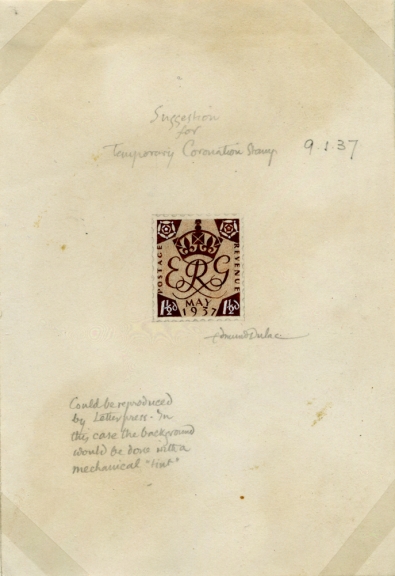 Suggestion
for
Temporary Coronation Stamp
9.1.37
POSTAGE
REVENUE
ERG
MAY
1937
1½d
1½d
Edmund Dulac
Could be reproduced
by Letterpress. In
this case the background
would be done with a
mechanical "tint"